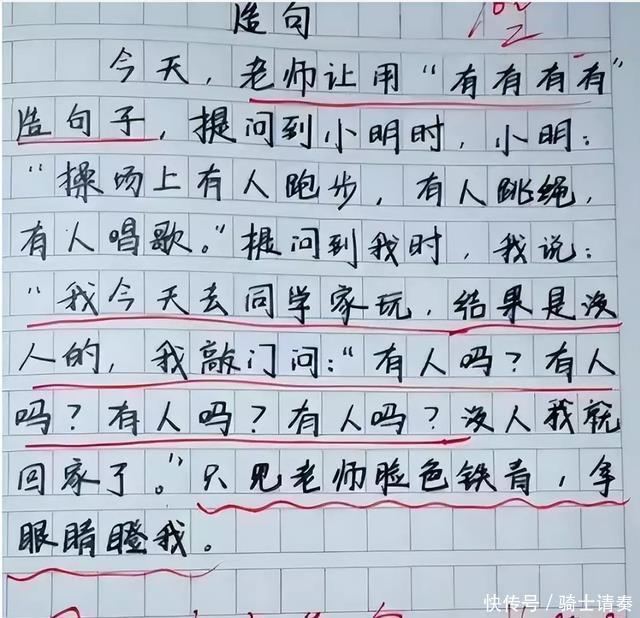 造句
今天，老师让用“有有有有”
造句子，提问到小明时，小明：
“操场上有人跑步，有人跳绳，
有人唱歌。”提问到我时，我说：
“我今天去同学家玩，结果是没
人的，我敲门问：“有人吗？有人
吗？有人吗？有人吗？没人我就
回家了。”只见老师脸色铁青，拿
眼睛瞪我。
快传号/骑士请奏